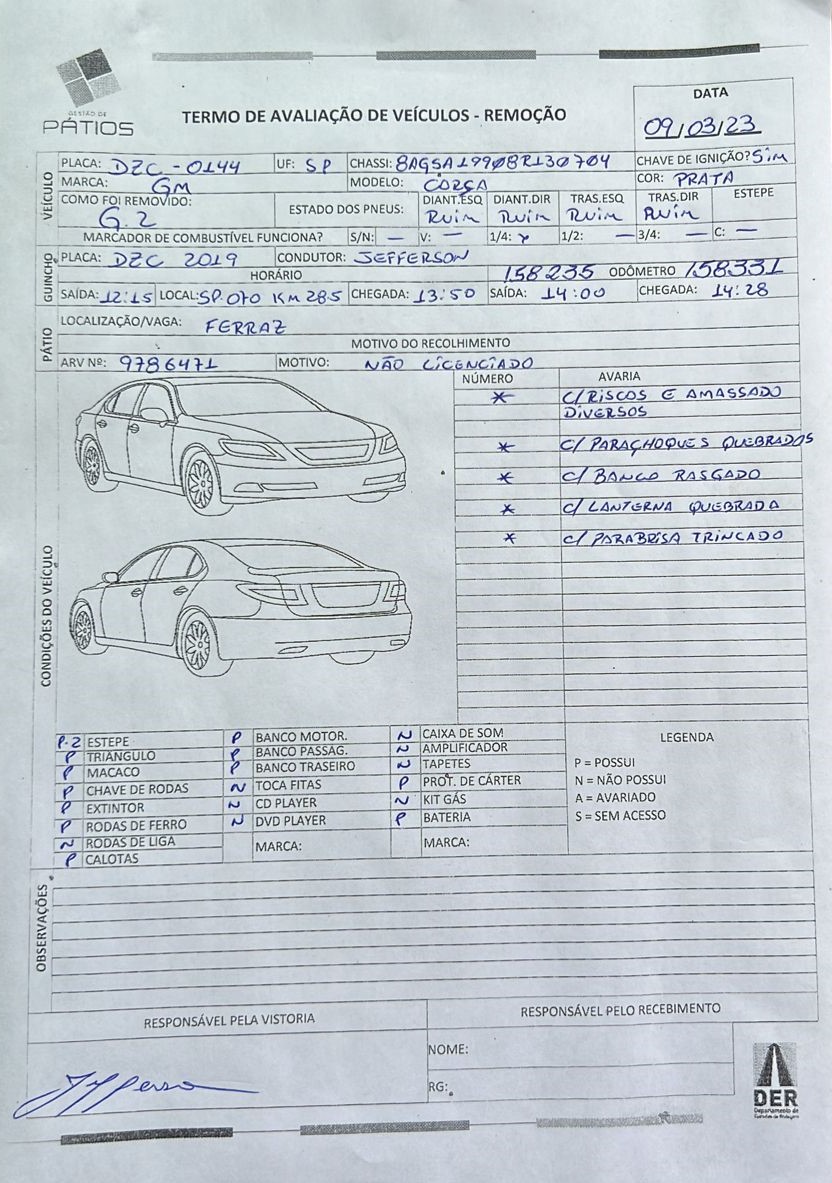 GESTÃO DE
PÁTIOS
TERMO DE AVALIAÇÃO DE VEÍCULOS - REMOÇÃO
DATA
09/03/23
VEÍCULO
PLACA: DZC-0144 UF: SP CHASSI: 8AGSA19908R130704 CHAVE DE IGNIÇÃO? Sim
MARCA: GM MODELO: CORSA COR: PRATA
COMO FOI REMOVIDO: G.2 ESTADO DOS PNEUS: DIANT.ESQ Ruim DIANT.DIR Ruim TRAS.ESQ Ruim TRAS.DIR Ruim ESTEPE
MARCADOR DE COMBUSTÍVEL FUNCIONA? S/N: — V: — 1/4: x 1/2: — 3/4: — C: —
GUINCHO
PLACA: DZC 2019 CONDUTOR: JEFFERSON
HORÁRIO 158235 ODÔMETRO 158331
SAÍDA: 12:15 LOCAL: SP.070 KM 285 CHEGADA: 13:50 SAÍDA: 14:00 CHEGADA: 14:28
PÁTIO
LOCALIZAÇÃO/VAGA: FERRAZ
MOTIVO DO RECOLHIMENTO
ARV Nº: 9786471 MOTIVO: NÃO LICENCIADO
CONDIÇÕES DO VEÍCULO
NÚMERO AVARIA
* C/ RISCOS E AMASSADO
DIVERSOS
* C/ PARAÇHOQUES QUEBRADOS
* C/ BANCO RASGADO
* C/ LANTERNA QUEBRADA
* C/ PARABRISA TRINCADO
P.2 ESTEPE
P TRIANGULO
P MACACO
P CHAVE DE RODAS
P EXTINTOR
P RODAS DE FERRO
N RODAS DE LIGA
P CALOTAS
P BANCO MOTOR.
P BANCO PASSAG.
P BANCO TRASEIRO
N TOCA FITAS
N CD PLAYER
N DVD PLAYER
MARCA:
N CAIXA DE SOM
N AMPLIFICADOR
N TAPETES
P PROT. DE CÁRTER
N KIT GÁS
P BATERIA
MARCA:
LEGENDA
P = POSSUI
N = NÃO POSSUI
A = AVARIADO
S = SEM ACESSO
OBSERVAÇÕES
RESPONSÁVEL PELA VISTORIA
RESPONSÁVEL PELO RECEBIMENTO
NOME:
RG:
DER
Departamento de
Estradas de Rodagem